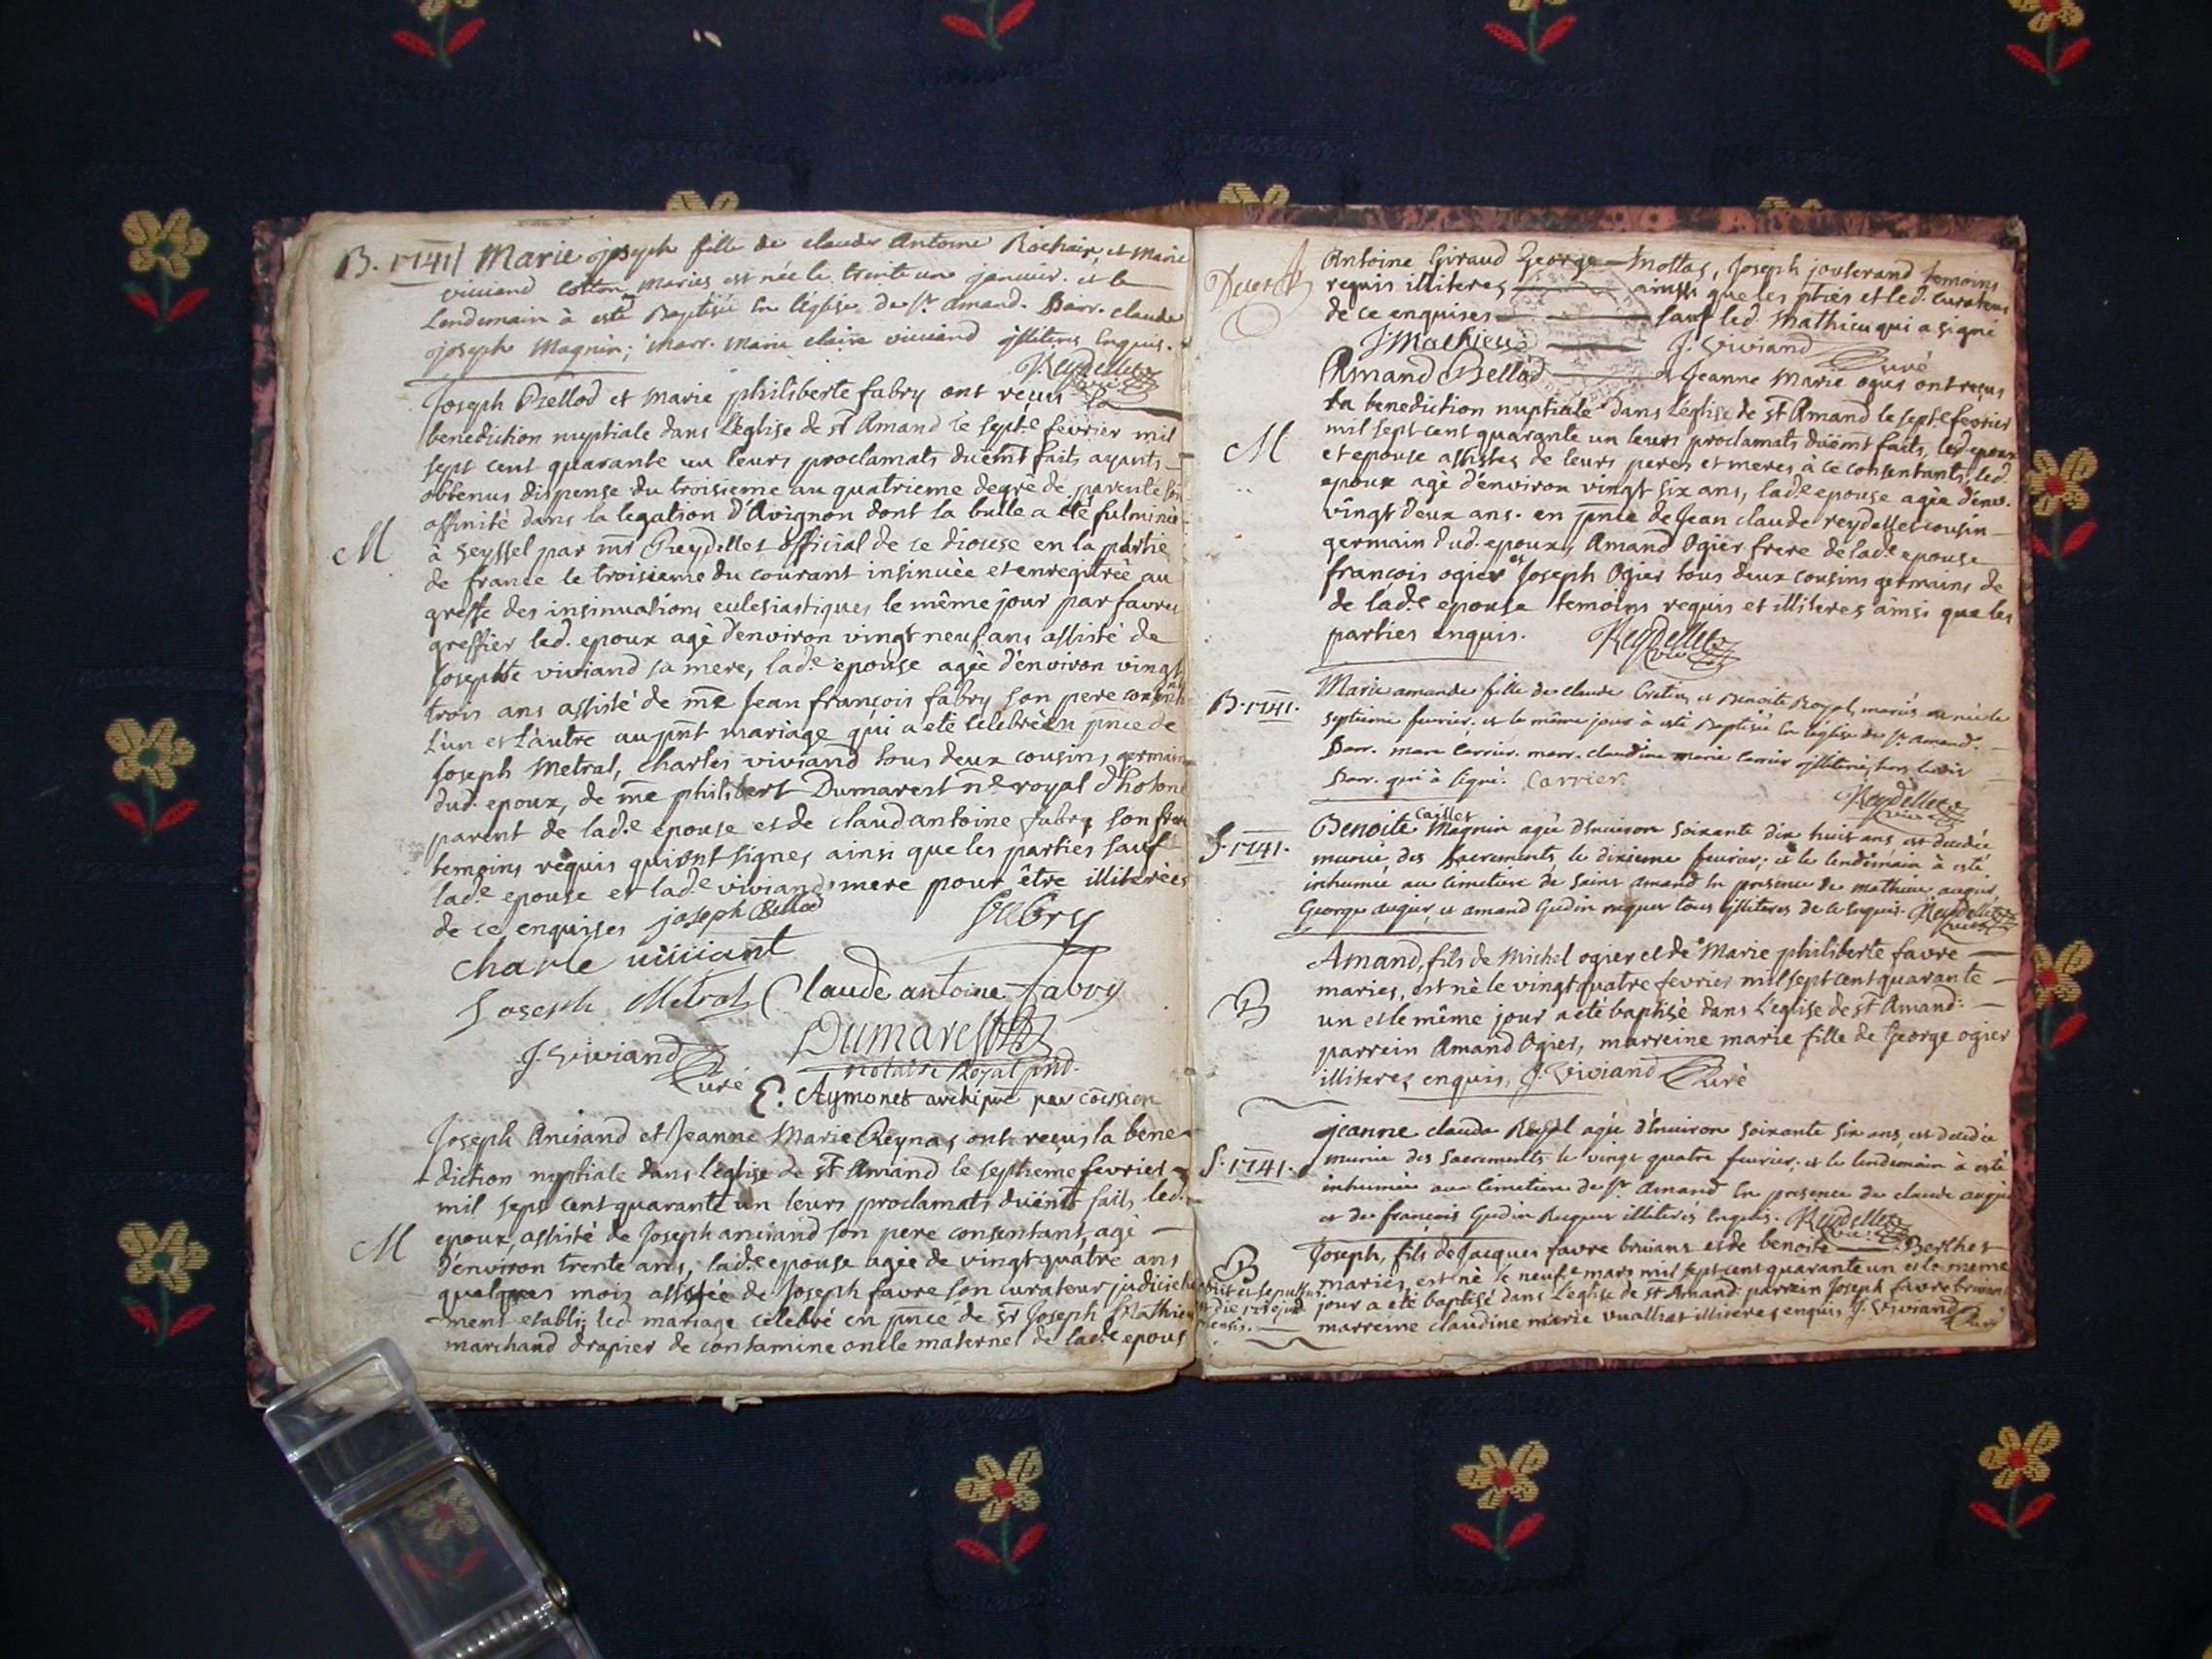 B. 1741 Marie joseph fille de claude Antoine Rochaix, et Marie
viviand cotton mariés est née le trente un janvier. et le
Lendemain à esté Baptisée En l'église de St. amand. Parr. claude
joseph Magnin; marr. Marie claire viviand illiteres Enquis.
Reydellet vic.
Joseph Bellod et Marie philiberte fabry ont reçus la
benediction nuptiale dans L'eglise de st Amand le sept.e fevrier mil
sept cent quarante un leurs proclamats duëmt faits ayants
obtenus dispense du troisieme au quatrieme degré de parenté
affinité dans la legation d'Avignon dont la bulle a eté fulminée
M
à seyssel par mr Reydellet official de ce diocese en la partie
de france le troisieme du courant insinuée et enregitrée au
greffe des insinuations eclesiastiques le même jour par favre
greffier led. epoux agé d'environ vingt neuf ans assisté de
Josephte viviand sa mere, lad.e epouse agée d'environ vingt
trois ans assisté de me Jean françois fabry son pere
L'un et L'autre au pnt mariage qui a eté celebré en pnce de
Joseph Metral, charles viviand tous deux cousins germains
dud. epoux, de me philibert Dumarest ne royal d'hotone
parent de lad.e epouse et de claud antoine fabry son frere
temoins requis qui ont signes ainsi que les parties sauf
lad.e epouse et lad.e viviand mere pour être illiterées
de ce enquises joseph Bellod fabry
charle uiuiant
Joseph Metral Claude antoine fabry
J. Viviand Curé Dumarest
notaire Royal pnd.
E. Aymonet archiptre par coission
Joseph Anciand et Jeanne Marie Reynas ont reçus la bene
diction nuptiale dans leglise de st Amand le septieme fevrier
mil sept cent quarante un leurs proclamats duëmt faits, led.
M
epoux, assisté de Joseph anciand son pere consentant, agé
d'environ trente ans, lad.e epouse agée de vingt quatre ans
quelques mois assistée de Joseph favre son curateur judicielle
ment etabli; led mariage célebré en pnce de sr Joseph Mathieu
marchand drapier de contamine oncle maternel de lad.e epouse
Antoine Giraud George Mottas, Joseph jouterand temoins
requis illiteres ainssi que les pties et led. curateur
de ce enquises sauf led. Mathieu qui a signé
J. Mathieu J. Viviand Curé
Amand Bellod et Jeanne Marie ogier ont reçus
La benediction nuptiale dans L'église de st Amand le sept.e fevrier
mil sept cent quarante un leurs proclamats duëmt faits, led. epoux
M
et epouse assistes de leurs peres et meres à ce consentants, led.
epoux agé d'environ vingt six ans, lad.e epouse agée d'env.
vingt deux ans. en pnce de Jean claude reydellet cousin
germain dud. epoux, Amand Ogier frere de lad.e epouse
françois ogier et Joseph Ogier tous deux cousins germains de
de lad.e epouse temoins requis et illiteres ainsi que les
parties enquis. Reydellet vic.
B. 1741.
Marie amande fille de claude Cretin, et Benoite Royal, mariés est née le
septieme fevrier. et le même jour à esté Baptisée En l'église de St. amand.
Parr. marc Carrier. marr. claudine marie Carrier
Parr. qui à signé. Carrier.
Reydellet vic.
cailles
S. 1741.
Benoite Magnin agée d'Environ soixante dix huit ans est decedée
munie des sacrements le dixieme fevrier; et le lendemain à esté
inhumée au cimetiere de saint Amand En presence de mathieu augier,
George augier, et amand Gudin requis tous illiteres de ce enquis. Reydellet vic.
Amand, fils de Michel ogier et de Marie philiberte favre
maries, est né le vingt quatre fevrier mil sept cent quarante
B
un et le même jour a eté baptisé dans L'eglise de st Amand:
parrein Amand Ogier, marreine marie fille de George ogier
illiteres enquis, J. Viviand Curé
S. 1741.
jeanne claude Royal agée d'Environ soixante six ans, est decedée
munie des sacrements le vingt quatre fevrier. et le lendemain à esté
inhumée au cimetiere de St. amand En presence de claude augier
et de françois Gudin Requis illiterés Enquis. Reydellet vic.
B
Joseph, fils de Jacques favre bruians et de benoite Berthet
mariés, est né le neuf.e mars mil sept cent quarante un et le meme
jour a eté baptisé dans L'eglise de st Amand: parrein Joseph favre bruians
marreine claudine marie vuattrat illiteres enquis J. Viviand Curé